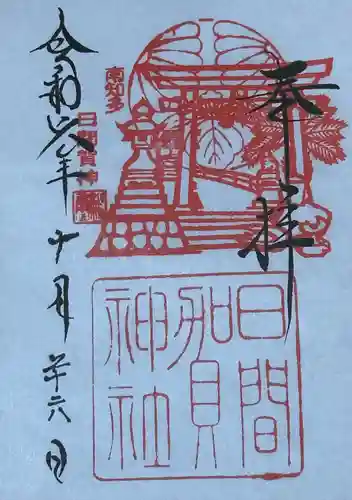 奉拝
日間
賀
神社
南知多
日間賀神
令和六年
十月
廿六日